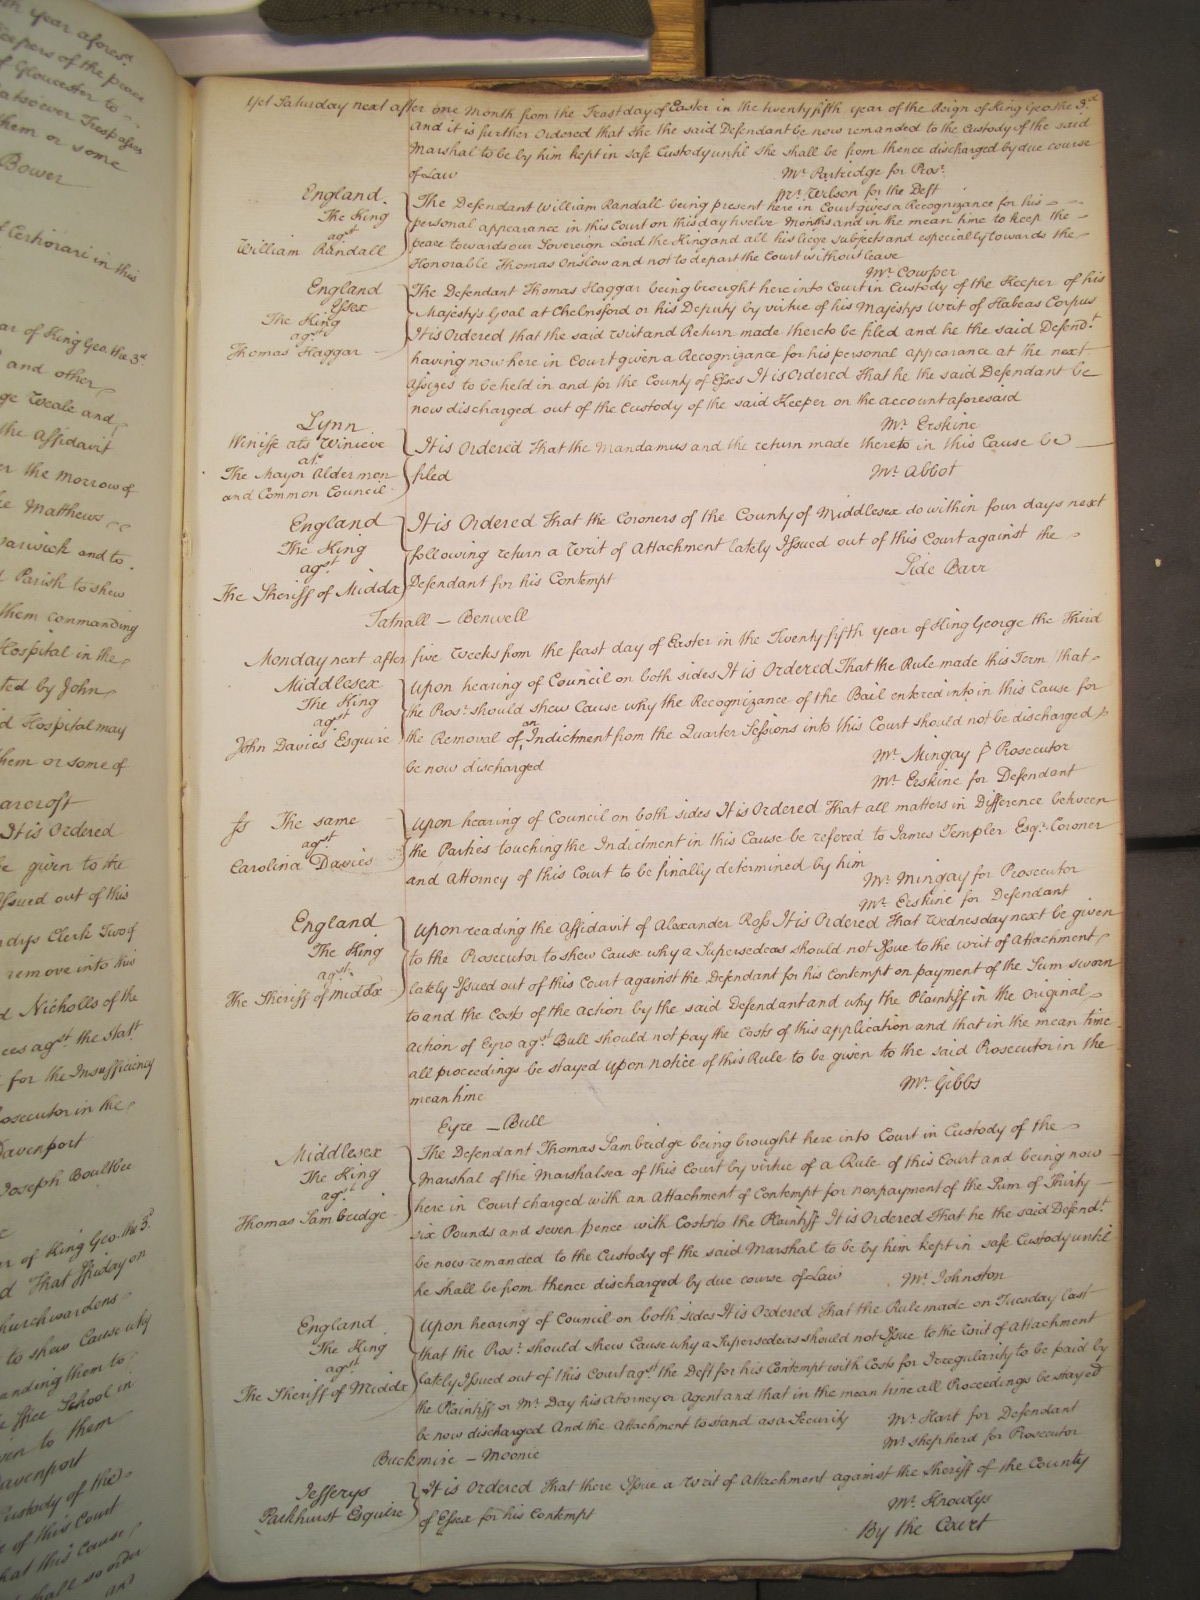 th year afores.d
Keepers of the peace
of Gloucester to
whatsoever Trespasses
them or some
Bower
of Certiorari in this
year of King Geo. the 3.d
and other
ge Weale and
the Affidavit
er the Morrow of
ke Matthews
Warwick and to
d Parish to shew
them commanding
Hospital in the
ted by John
id Hospital may
them or some of
arcroft
It is Ordered
be given to the
Issued out of this
ndys Clerk Two of
remove into this
d Nicholls of the
ces ag.st the Stat.
for the Insufficiency
osecutor in the
Davenport
Joseph Boultbee
r of King Geo. the 3.d
d That Friday on
Churchwardens
to shew Cause why
anding them to
e ffree School in
ven to them
Davenport
Custody of the
e of this Court
hat this Cause
shall so order
and
Yet Saturday next after one Month from the Feast day of Easter in the twenty fifth year of the Reign of King Geo. the 3.rd
And it is further Ordered that she the said Defendant be now remanded to the Custody of the said
Marshal to be by him kept in safe Custody until she shall be from thence discharged by due course
of Law
Mr. Partridge for Pros.r
Mr. Wilson for the Deft
England
The King
ag.st
William Randall
The Defendant William Randall being present here in Court gives a Recognizance for his
personal appearance in this Court on this day twelve Months and in the mean time to keep the
peace towards our Sovereign Lord the King and all his liege subjects and especially towards the
Honorable Thomas Onslow and not to depart the Court without leave
Mr. Cowper
England
Essex
The King
ag.st
Thomas Haggar
The Defendant Thomas Haggar being brought here into Court in Custody of the Keeper of his
Majestys Goal at Chelmsford or his Deputy by virtue of his Majestys Writ of Habeas Corpus
It is Ordered that the said Writ and Return made thereto be filed and he the said Defend.t
having now here in Court given a Recognizance for his personal appearance at the next
Assizes to be held in and for the County of Essex It is Ordered That he the said Defendant be
now discharged out of the Custody of the said Keeper on the account aforesaid
Mr. Erskine
Lynn
Winiffe ats Winieve
at.
The Mayor Aldermen
and Common Council
It is Ordered That the Mandamus and the return made thereto in this Cause be
filed
Mr. Abbot
England
The King
ag.st
The Sheriff of Middx
It is Ordered That the Coroners of the County of Middlesex do within four days next
following return a Writ of Attachment lately Issued out of this Court against the
Defendant for his Contempt
Side Barr
Tatnall – Benwell
Monday next after five Weeks from the feast day of Easter in the Twenty fifth year of King George the Third
Middlesex
The King
ag.st
John Davies Esquire
Upon hearing of Council on both sides It is Ordered That the Rule made this Term that
the Pros.r should shew Cause why the Recognizance of the Bail entered into in this Cause for
the Removal of an Indictment from the Quarter Sessions into this Court should not be discharged
be now discharged
Mr. Mingay f Prosecutor
Mr. Erskine for Defendant
fs The same
ag.st
Carolina Davies
Upon hearing of Council on both sides It is Ordered That all matters in Difference between
the Parties touching the Indictment in this Cause be refered to James Templer Esq.r Coroner
and Attorney of this Court to be finally determined by him
Mr. Mingay for Prosecutor
Mr. Erskine for Defendant
England
The King
ag.st
The Sheriff of Middx
Upon reading the Affidavit of Alexander Ross It is Ordered That Wednesday next be given
to the Prosecutor to shew Cause why a Supersedeas should not Issue to the Writ of Attachment
lately Issued out of this Court against the Defendant for his Contempt on payment of the Sum sworn
to and the Costs of the action by the said Defendant and why the Plaintiff in the Original
Action of Eyre ag.st Bull should not pay the Costs of this application and that in the mean time
all proceedings be stayed Upon notice of this Rule to be given to the said Prosecutor in the
mean time
Mr. Gibbs
Eyre – Bull
Middlesex
The King
ag.st
Thomas Sambridge
The Defendant Thomas Sambridge being brought here into Court in Custody of the
Marshal of the Marshalsea of this Court by virtue of a Rule of this Court and being now
here in Court charged with an Attachment of Contempt for nonpayment of the Sum of Thirty
six Pounds and seven pence with Costs to the Plaintiff It is Ordered That he the said Defend.t
be now remanded to the Custody of the said Marshal to be by him kept in safe Custody until
he shall be from thence discharged by due course of Law
Mr. Johnston
England
The King
ag.st
The Sheriff of Middx
Upon hearing of Council on both sides It is Ordered That the Rule made on Tuesday last
that the Pros.r should shew Cause why a Supersedeas should not Issue to the Writ of Attachment
lately Issued out of this Court ag.st the Deft for his Contempt with Costs for Irregularity to be paid by
the Plaintiff or Mr. Day his Attorney or Agent and that in the mean time all Proceedings be stayed
be now discharged And the Attachment to stand as a Security
Mr. Hart for Defendant
Mr. Shepherd for Prosecutor
Buckmire – Moonie
Jefferys
Parkhurst Esquire
It is Ordered That there Issue a Writ of Attachment against the Sheriff of the County
of Essex for his Contempt
Mr. Knowlys
By the Court